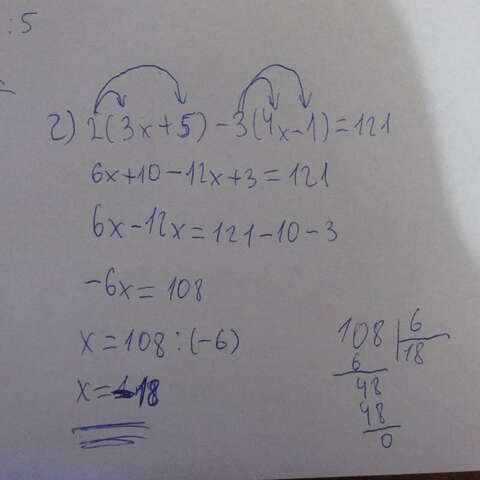 :5
г) 2(3x+5)-3(4x-1)=121
6x+10-12x+3=121
6x-12x=121-10-3
-6x=108
x=108:(-6)
x=-18
108 6
6 18
48
48
0